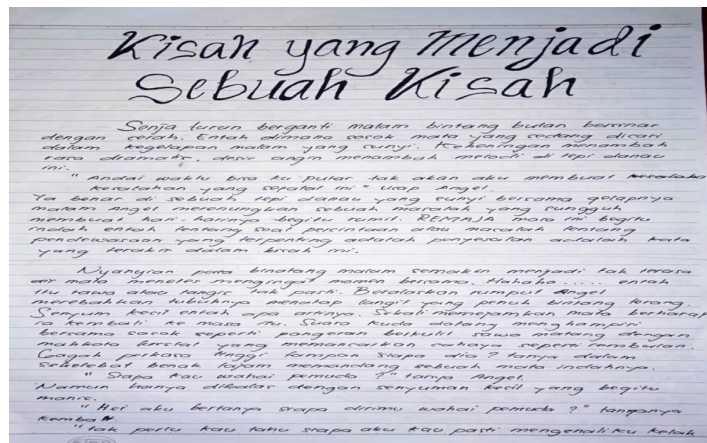 Kisah yang menjadi
Sebuah Kisah
Senja turun berganti malam bintang bulan bersinar
dengan cerah. Entah dimana sosok mata yang sedang dicari
dalam kegelapan malam yang sunyi. Keheningan menambah
rasa dramatis, desir angin menambah melodi di tepi danau
ini.
"Andai waktu bisa ku putar tak akan aku membuat
kesalahan yang sefatal ini" ucap Angel.
Ya benar di sebuah tepi danau yang sunyi bersama gelapnya
malam Angel merenungkan sebuah masalah yang sungguh
membuat hari-harinya begitu rumit. REMAJA masa ini begitu
indah entah tentang soal percintaan atau masalah tentang
pendewasaan yang terpenting adalah penyesalan adalah kata
yang terakir dalam kisah ini.
Nyanyian para binatang malam semakin menjadi tak terasa
air mata menetes mengingat momen bersama. Hahaha..... entah
itu tawa atau tangis tak pasti. Beralaskan rumput Angel
merebahkan tubuhnya menatap langit yang penuh bintang terang.
Senyum kecil entah apa artinya. Sekali memejamkan mata berharap
ia kembali ke masa itu. Suara kuda datang menghampiri
bersama sosok seperti pangeran berkulit sawo matang dengan
mahkota kristal yang memancarkan cahaya seperti rembulan.
Gagah perkasa tinggi tampan siapa dia? tanya dalam
sekelebat benak tajam memandang sebuah mata indahnya.
"Siapa kau wahai pemuda?" tanya Angel.
Namun hanya dibalas dengan senyuman kecil yang begitu
manis.
"Hei aku bertanya siapa dirimu wahai pemuda?" tanyanya
kembali
"tak perlu kau tahu siapa aku kau pasti mengenaliku kelak